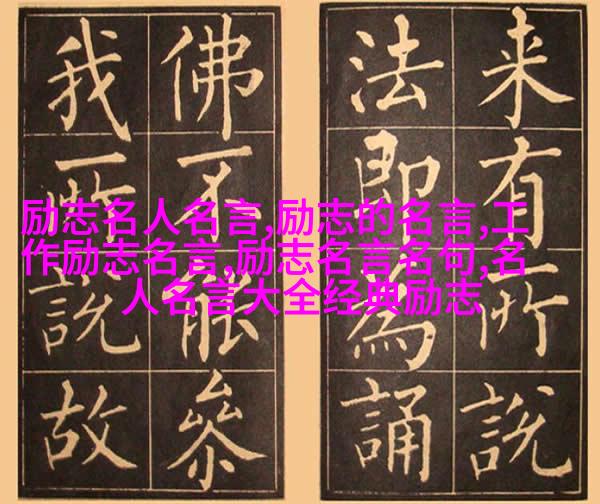 来有所說
法即為誦
佛不能叅
我所說故
励志名人名言,励志的名言,工
作励志名言,励志名言名句,名
人名言大全经典励志